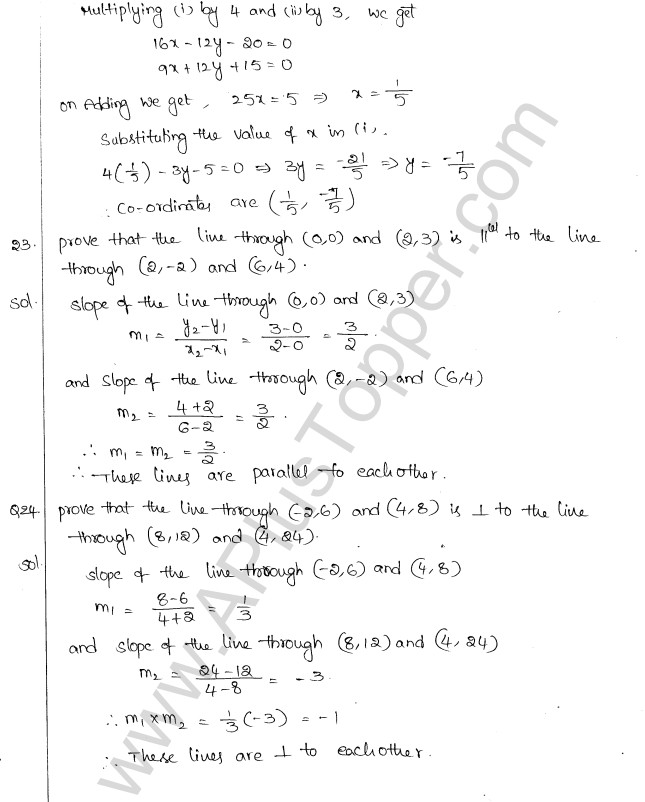 Multiplying (i) by 4 and (ii) by 3, we get
16x - 12y - 20 = 0
9x + 12y + 15 = 0
on Adding we get, 25x = 5 ⇒ x = 1/5
Substituting the value of x in (i).
4(1/5) - 3y - 5 = 0 ⇒ 3y = -21/5 ⇒ y = -7/5
∴ Co-ordinates are (1/5, -7/5)
23. prove that the line through (0,0) and (2,3) is ||lel to the line
through (2,-2) and (6,4).
Sol. slope of the line through (0,0) and (2,3)
m1 = y2-y1/x2-x1 = 3-0/2-0 = 3/2.
and slope of the line through (2,-2) and (6,4)
m2 = 4+2/6-2 = 3/2.
∴ m1 = m2 = 3/2.
∴ These lines are parallel to each other.
Q24. prove that the line through (-2,6) and (4,8) is ⊥ to the line
through (8,12) and (4,24).
Sol. slope of the line through (-2,6) and (4,8)
m1 = 8-6/4+2 = 1/3
and slope of the line through (8,12) and (4,24)
m2 = 24-12/4-8 = -3.
∴ m1 × m2 = 1/3 (-3) = -1
∴ These lines are ⊥ to each other.
www.APlusTopper.com